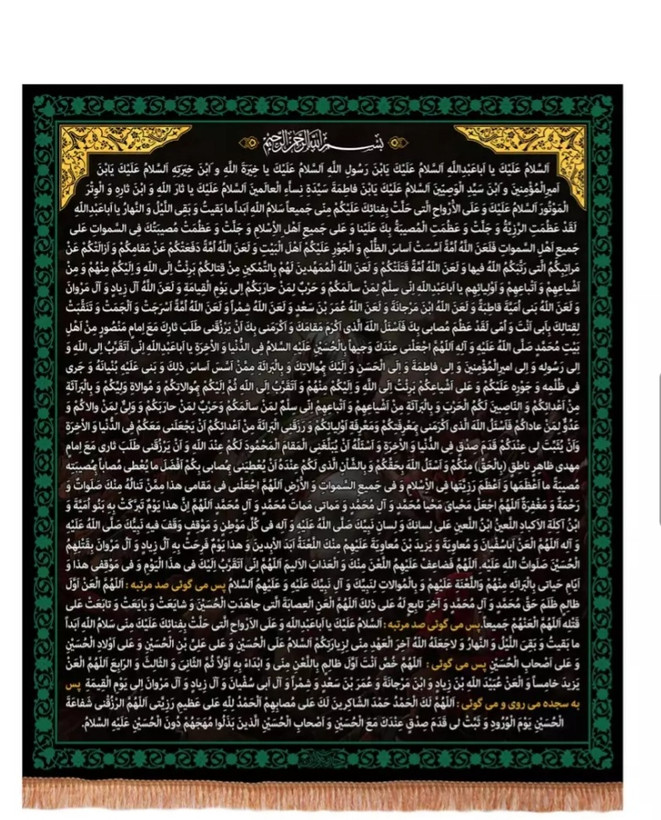 بسم الله الرحمن الرحیم
اَلسَّلامُ عَلَیْکَ یا اَباعَبْدِاللَّهِ اَلسَّلامُ عَلَیْکَ یَابْنَ رَسُولِ اللَّهِ اَلسَّلامُ عَلَیْکَ یا خِیَرَةَ اللَّهِ و َابْنَ خِیَرَتِهِ اَلسَّلامُ عَلَیْکَ یَابْنَ
اَمیرِالْمُؤْمِنینَ وَ ابْنَ سَیِّدِ الْوَصِیّینَ اَلسَّلامُ عَلَیْکَ یَابْنَ فاطِمَةَ سَیِّدَةِ نِساَّءِ الْعالَمینَ اَلسَّلامُ عَلَیْکَ یا ثارَ اللَّهِ وَ ابْنَ ثارِهِ وَ الْوِتْرَ
الْمَوْتُورَ اَلسَّلامُ عَلَیْکَ وَ عَلَی الاَْرْواحِ الَّتی حَلَّتْ بِفِناَّئِکَ عَلَیْکُمْ مِنّی جَمیعاً سَلامُ اللَّهِ اَبَداً ما بَقیتُ وَ بَقِیَ اللَّیْلُ وَ النَّهارُ یا اَباعَبْدِاللَّهِ
لَقَدْ عَظُمَتِ الرَّزِیَّةُ وَ جَلَّتْ وَ عَظُمَتِ الْمُصیبَةُ بِکَ عَلَیْنا وَ عَلی جَمیعِ اَهْلِ الاِْسْلامِ وَ جَلَّتْ وَ عَظُمَتْ مُصیبَتُکَ فِی السَّمواتِ عَلی
جَمیعِ اَهْلِ السَّمواتِ فَلَعَنَ اللَّهُ اُمَّةً اَسَّسَتْ اَساسَ الظُّلْمِ وَ الْجَوْرِ عَلَیْکُمْ اَهْلَ الْبَیْتِ وَ لَعَنَ اللَّهُ اُمَّةً دَفَعَتْکُمْ عَنْ مَقامِکُمْ وَ اَزالَتْکُمْ عَنْ
مَراتِبِکُمُ الَّتی رَتَّبَکُمُ اللَّهُ فیها وَ لَعَنَ اللَّهُ اُمَّةً قَتَلَتْکُمْ وَ لَعَنَ اللَّهُ الْمُمَهِّدینَ لَهُمْ بِالتَّمْکینِ مِنْ قِتالِکُمْ بَرِئْتُ اِلَی اللَّهِ وَ اِلَیْکُمْ مِنْهُمْ وَ مِنْ
اَشْیاعِهِمْ وَ اَتْباعِهِمْ وَ اَوْلِیاَّئِهِم یا اَباعَبْدِاللَّهِ اِنّی سِلْمٌ لِمَنْ سالَمَکُمْ وَ حَرْبٌ لِمَنْ حارَبَکُمْ اِلی یَوْمِ الْقِیامَةِ وَ لَعَنَ اللَّهُ آلَ زِیادٍ وَ آلَ مَرْوانَ
وَ لَعَنَ اللَّهُ بَنی اُمَیَّةَ قاطِبَةً وَ لَعَنَ اللَّهُ ابْنَ مَرْجانَةَ وَ لَعَنَ اللَّهُ عُمَرَ بْنَ سَعْدٍ وَ لَعَنَ اللَّهُ شِمْراً وَ لَعَنَ اللَّهُ اُمَّةً اَسْرَجَتْ وَ اَلْجَمَتْ وَ تَنَقَّبَتْ
لِقِتالِکَ بِاَبی اَنْتَ وَ اُمّی لَقَدْ عَظُمَ مُصابی بِکَ فَاَسْئَلُ اللَّهَ الَّذی اَکْرَمَ مَقامَکَ وَ اَکْرَمَنی بِکَ اَنْ یَرْزُقَنی طَلَبَ ثارِکَ مَعَ اِمامٍ مَنْصُورٍ مِنْ اَهْلِ
بَیْتِ مُحَمَّدٍ صَلَّی اللَّهُ عَلَیْهِ وَ آلِهِ اَللّهُمَّ اجْعَلْنی عِنْدَکَ وَجیهاً بِالْحُسَیْنِ عَلَیْهِ السَّلامُ فِی الدُّنْیا وَ الاْخِرَةِ یا اَباعَبْدِاللَّهِ اِنّی اَتَقَرَّبُ اِلی اللَّهِ وَ
اِلی رَسُولِهِ وَ اِلی امیرِالْمُؤْمِنینَ وَ اِلی فاطِمَةَ وَ اِلَی الْحَسَنِ وَ اِلَیْکَ بِمُوالاتِکَ وَ بِالْبَراَّئَةِ مِمَّنْ اَسَّسَ اَساسَ ذلِکَ وَ بَنی عَلَیْهِ بُنْیانَهُ وَ جَری
فی ظُلْمِهِ وَ جَوْرِهِ عَلَیْکُمْ وَ عَلی اَشْیاعِکُمْ بَرِئْتُ اِلَی اللَّهِ وَ اِلَیْکُمْ مِنْهُمْ وَ اَتَقَرَّبُ اِلَی اللَّهِ ثُمَّ اِلَیْکُمْ بِمُوالاتِکُمْ وَ مُوالاةِ وَلِیِّکُمْ وَ بِالْبَرآئَةِ
مِنْ اَعْدائِکُمْ وَ النّاصِبینَ لَکُمُ الْحَرْبَ وَ بِالْبَرآئَةِ مِنْ اَشْیاعِهِمْ وَ اَتْباعِهِمْ اِنّی سِلْمٌ لِمَنْ سالَمَکُمْ وَ حَرْبٌ لِمَنْ حارَبَکُمْ وَ وَلِیٌّ لِمَنْ والاکُمْ وَ
عَدُوٌّ لِمَنْ عاداکُمْ فَاَسْئَلُ اللَّهَ الَّذی اَکْرَمَنی بِمَعْرِفَتِکُمْ وَ مَعْرِفَةِ اَوْلِیاَّئِکُمْ وَ رَزَقَنِی الْبَراَّئَةَ مِنْ اَعْدائِکُمْ اَنْ یَجْعَلَنی مَعَکُمْ فِی الدُّنْیا وَ الاْخِرَةِ
وَ اَنْ یُثَبِّتَ لی عِنْدَکُمْ قَدَمَ صِدْقٍ فِی الدُّنْیا وَ الاْخِرَةِ وَ اَسْئَلُهُ اَنْ یُبَلِّغَنِی الْمَقامَ الْمَحْمُودَ لَکُمْ عِنْدَ اللَّهِ وَ اَنْ یَرْزُقَنی طَلَبَ ثاری مَعَ اِمامٍ
مهدی ظاهِرٍ ناطِقٍ (بِالْحَقِّ) مِنْکُمْ وَ اَسْئَلُ اللَّهَ بِحَقِّکُمْ وَ بِالشَّاْنِ الَّذی لَکُمْ عِنْدَهُ اَنْ یُعْطِیَنی بِمُصابی بِکُمْ اَفْضَلَ ما یُعْطی مُصاباً بِمُصیبَتِهِ
مُصیبَةً ما اَعْظَمَها وَ اَعْظَمَ رَزِیَّتَها فِی الاِْسْلامِ وَ فی جَمیعِ السَّمواتِ وَ الاَْرْضِ اَللّهُمَّ اجْعَلْنی فی مَقامی هذا مِمَّنْ تَنالُهُ مِنْکَ صَلَواتٌ وَ
رَحْمَةٌ وَ مَغْفِرَةٌ اَللّهُمَّ اجْعَلْ مَحْیایَ مَحْیا مُحَمَّدٍ وَ آلِ مُحَمَّدٍ وَ مَماتی مَماتَ مُحَمَّدٍ وَ آلِ مُحَمَّدٍ اَللّهُمَّ اِنَّ هذا یَوْمٌ تَبَرَّکَتْ بِهِ بَنُو اُمَیَّةَ وَ
ابْنُ آکِلَةِ الاَکبادِ اللَّعینُ ابْنُ اللَّعینِ عَلی لِسانِکَ وَ لِسانِ نَبِیِّکَ صَلَّی اللَّهُ عَلَیْهِ وَ آلِهِ فی کُلِّ مَوْطِنٍ وَ مَوْقِفٍ وَقَفَ فیهِ نَبِیُّکَ صَلَّی اللَّهُ عَلَیْهِ
وَ آلِهِ اَللّهُمَّ الْعَنْ اَباسُفْیانَ وَ مُعاوِیَةَ وَ یَزیدَ بْنَ مُعاوِیَةَ عَلَیْهِمْ مِنْکَ اللَّعْنَةُ اَبَدَ الاْبِدینَ وَ هذا یَوْمٌ فَرِحَتْ بِهِ آلُ زِیادٍ وَ آلُ مَرْوانَ بِقَتْلِهِمُ
الْحُسَیْنَ صَلَواتُ اللَّهِ عَلَیْهِ. اَللّهُمَّ فَضاعِفْ عَلَیْهِمُ اللَّعْنَ مِنْکَ وَ الْعَذابَ الاَلیمَ اَللّهُمَّ اِنّی اَتَقَرَّبُ اِلَیْکَ فی هذَا الْیَوْمِ وَ فی مَوْقِفی هذا وَ
اَیّامِ حَیاتی بِالْبَراَّئَةِ مِنْهُمْ وَ اللَّعْنَةِ عَلَیْهِمْ وَ بِالْمُوالاتِ لِنَبِیِّکَ وَ آلِ نَبِیِّکَ عَلَیْهِ وَ عَلَیْهِمُ اَلسَّلامُ پس می گوئی صد مرتبه : اَللّهُمَّ الْعَنْ اَوَّلَ
ظالِمٍ ظَلَمَ حَقَّ مُحَمَّدٍ وَ آلِ مُحَمَّدٍ وَ آخِرَ تابِعٍ لَهُ عَلی ذلِکَ اَللّهُمَّ الْعَنِ الْعِصابَةَ الَّتی جاهَدَتِ الْحُسَیْنَ وَ شایَعَتْ وَ بایَعَتْ وَ تابَعَتْ عَلی
قَتْلِهِ اَللّهُمَّ الْعَنْهُمْ جَمیعاً. پس می گوئی صد مرتبه : اَلسَّلامُ عَلَیْکَ یا اَباعَبْدِاللَّهِ وَ عَلَی الاَْرْواحِ الَّتی حَلَّتْ بِفِناَّئِکَ عَلَیْکَ مِنّی سَلامُ اللَّهِ اَبَداً
ما بَقیتُ وَ بَقِیَ اللَّیْلُ وَ النَّهارُ وَ لاجَعَلَهُ اللَّهُ آخِرَ الْعَهْدِ مِنّی لِزِیارَتِکُمْ اَلسَّلامُ عَلَی الْحُسَیْنِ وَ عَلی عَلِیِّ بْنِ الْحُسَیْنِ وَ عَلی اَوْلادِ الْحُسَیْنِ
وَ عَلی اَصْحابِ الْحُسَیْنِ پس می گوئی : اَللّهُمَّ خُصَّ اَنْتَ اَوَّلَ ظالِمٍ بِاللَّعْنِ مِنّی وَ ابْدَاْ بِهِ اَوَّلاً ثُمَّ الثّانِیَ وَ الثّالِثَ وَ الرّابِعَ اَللّهُمَّ الْعَنْ
یَزیدَ خامِساً وَ الْعَنْ عُبَیْدَ اللَّهِ بْنَ زِیادٍ وَ ابْنَ مَرْجانَةَ وَ عُمَرَ بْنَ سَعْدٍ وَ شِمْراً وَ آلَ اَبی سُفْیانَ وَ آلَ زِیادٍ وَ آلَ مَرْوانَ اِلی یَوْمِ الْقِیمَةِ پس
به سجده می روی و می گوئی : اَللّهُمَّ لَکَ الْحَمْدُ حَمْدَ الشّاکِرینَ لَکَ عَلی مُصابِهِمْ اَلْحَمْدُ لِلَّهِ عَلی عَظیمِ رَزِیَّتی اَللّهُمَّ ارْزُقْنی شَفاعَةَ
الْحُسَیْنِ یَوْمَ الْوُرُودِ وَ ثَبِّتْ لی قَدَمَ صِدْقٍ عِنْدَکَ مَعَ الْحُسَیْنِ وَ اَصْحابِ الْحُسَیْنِ الَّذینَ بَذَلُوا مُهَجَهُمْ دُونَ الْحُسَیْنِ عَلَیْهِ السَّلامُ.